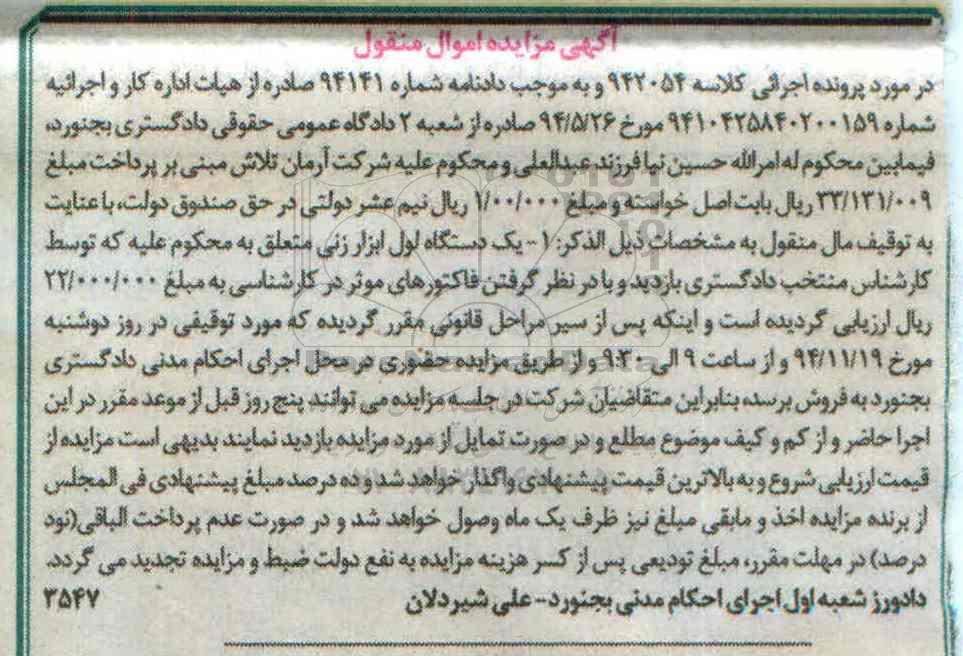 آگهی مزایده اموال منقول
در مورد پرونده اجرائی کلاسه ۹۴۲۰۵۴ و به موجب دادنامه شماره ۹۴۱۴۱ صادره از هیات اداره کار و اجرائیه
شماره ۹۴۱۰۴۲۵۸۴۰۲۰۰۱۵۹ مورخ ۹۴/۵/۲۶ صادره از شعبه ۲ دادگاه عمومی حقوقی دادگستری بجنورد،
فیمابین محکوم له امرالله حسین نیا فرزند عبدالعلی و محکوم علیه شرکت آرمان تلاش مبنی بر پرداخت مبلغ
۳۳/۱۳۱/۰۰۹ ریال بابت اصل خواسته و مبلغ ۱/۰۰/۰۰۰ ریال نیم عشر دولتی در حق صندوق دولت، با عنایت
به توقیف مال منقول به مشخصات ذیل الذکر: ۱- یک دستگاه لول ابزار زنی متعلق به محکوم علیه که توسط
کارشناس منتخب دادگستری بازدید و با در نظر گرفتن فاکتورهای موثر در کارشناسی به مبلغ ۲۲/۰۰۰/۰۰۰
ریال ارزیابی گردیده است و اینکه پس از سیر مراحل قانونی مقرر گردیده که مورد توقیفی در روز دوشنبه
مورخ ۹۴/۱۱/۱۹ و از ساعت ۹ الی ۹:۳۰ و از طریق مزایده حضوری در محل اجرای احکام مدنی دادگستری
بجنورد به فروش برسد، بنابراین متقاضیان شرکت در جلسه مزایده می توانند پنج روز قبل از موعد مقرر در این
اجرا حاضر و از کم و کیف موضوع مطلع و در صورت تمایل از مورد مزایده بازدید نمایند بدیهی است مزایده از
قیمت ارزیابی شروع و به بالاترین قیمت پیشنهادی واگذار خواهد شد و ده درصد مبلغ پیشنهادی فی المجلس
از برنده مزایده اخذ و مابقی مبلغ نیز ظرف یک ماه وصول خواهد شد و در صورت عدم پرداخت الباقی(نود
درصد) در مهلت مقرر، مبلغ تودیعی پس از کسر هزینه مزایده به نفع دولت ضبط و مزایده تجدید می گردد.
دادورز شعبه اول اجرای احکام مدنی بجنورد- علی شیردلان ۳۵۴۷